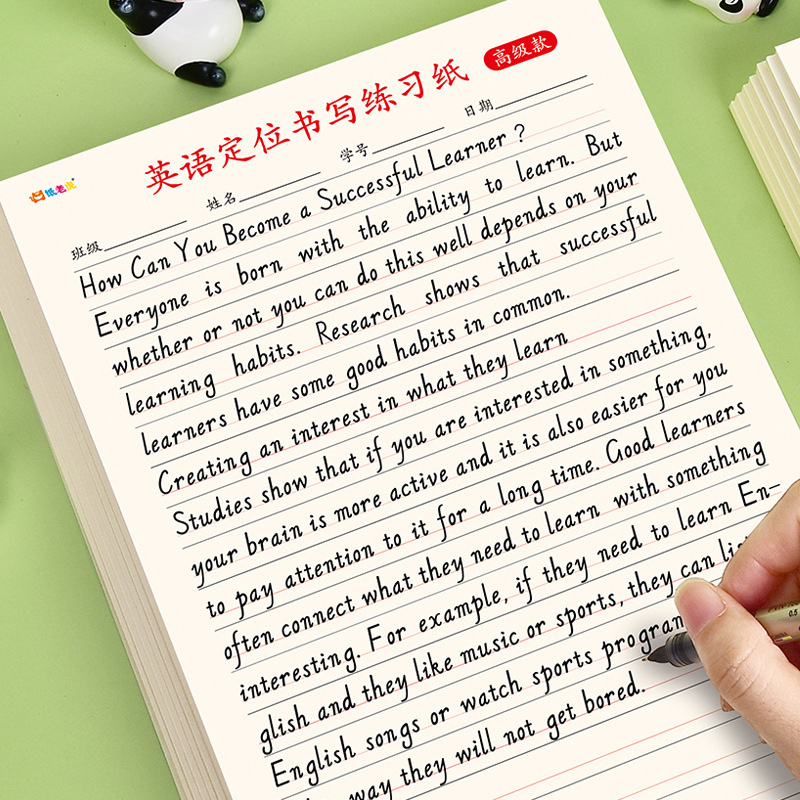 纸老虎
英语定位书写练习纸 高级款
班级 姓名 学号 日期
How Can You Become a Successful Learner?
Everyone is born with the ability to learn. But
whether or not you can do this well depends on your
learning habits. Research shows that successful
learners have some good habits in common.
Creating an interest in what they learn
Studies show that if you are interested in something,
your brain is more active and it is also easier for you
to pay attention to it for a long time. Good learners
often connect what they need to learn with something
interesting. For example, if they need to learn En-
glish and they like music or sports, they can
English songs or watch sports
way they will not get bored.
0.5